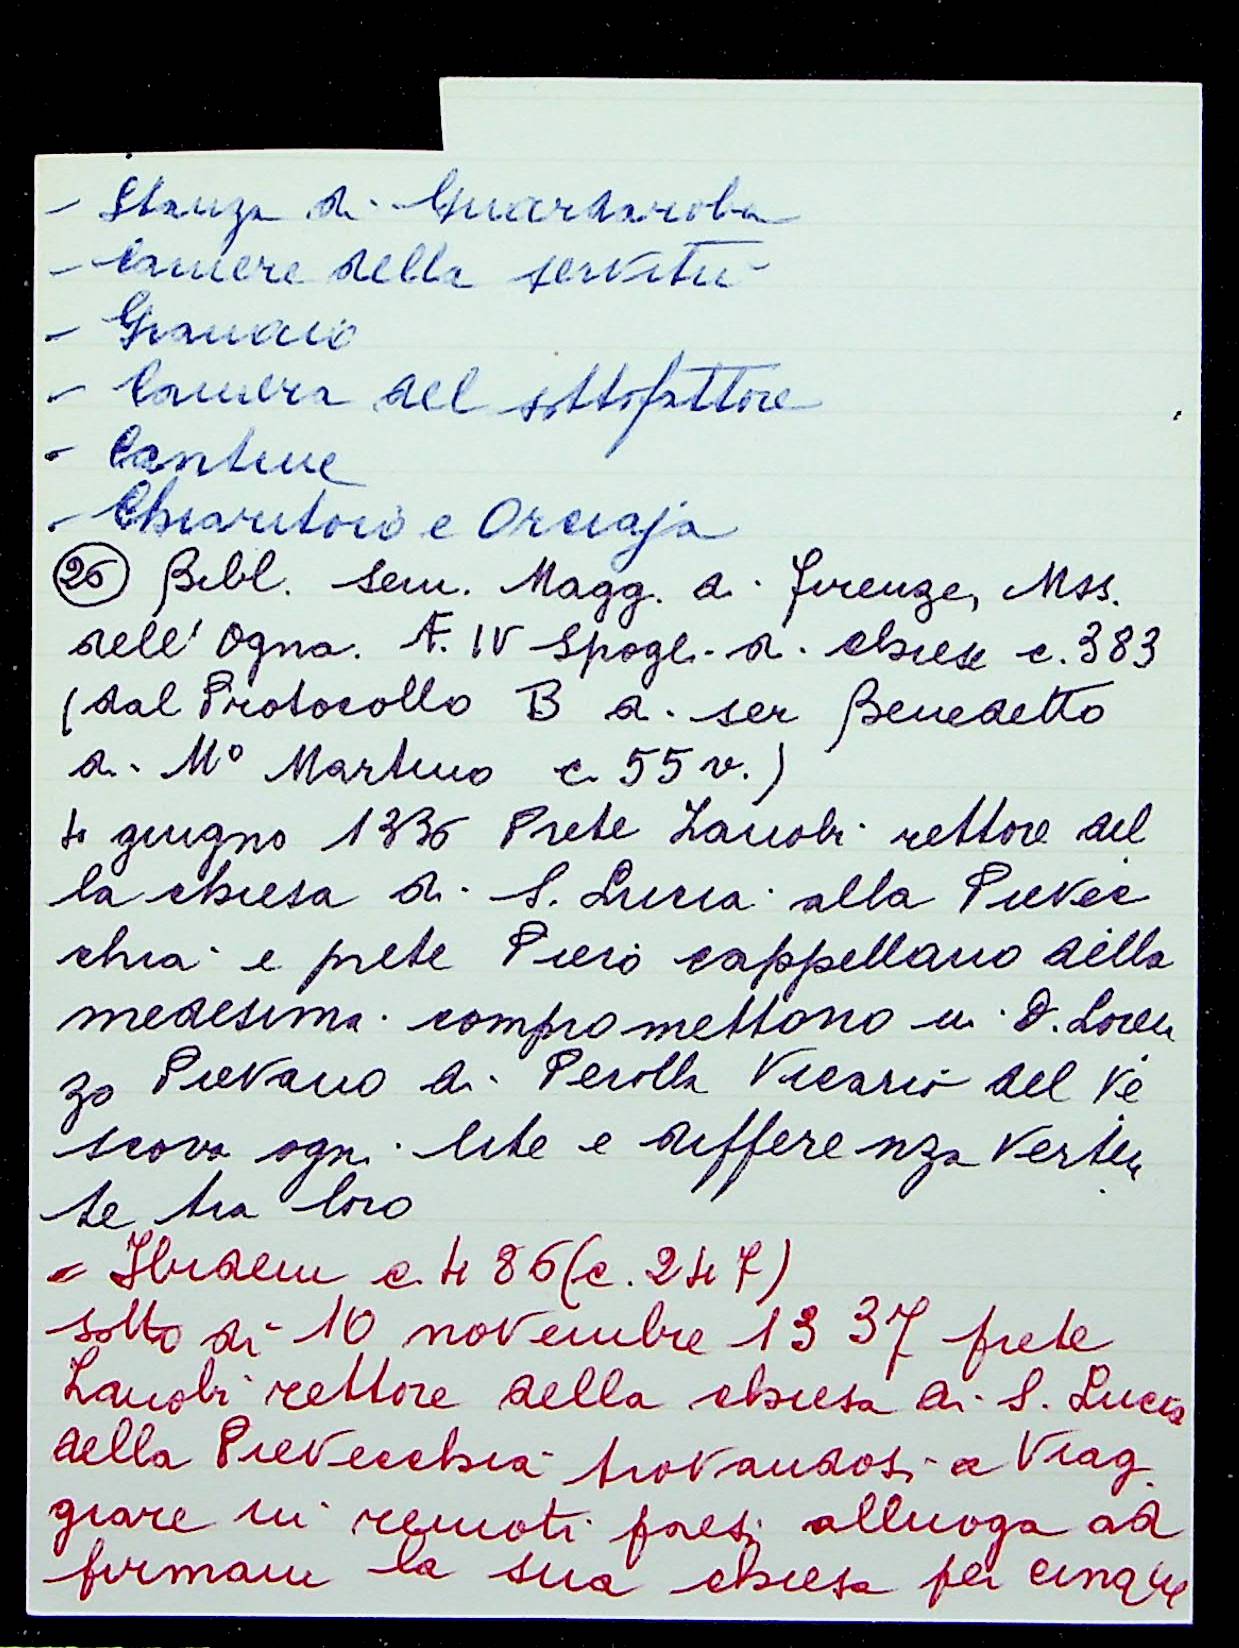 - Stanza di Guardaroba
- Camere della servitù
- Granaio
- Camera del sottofattore
- Cantine
- Chiaritoio e Orciaja
(26) Bibl. Sem. Magg. di Firenze, Mss.
dell'Ogna. F. IV Spogli di chiese c. 383
(dal Protocollo B di ser Benedetto
di M° Martino c. 55 v.)
4 giugno 1336 Prete Zanobi rettore del
la chiesa di S. Lucia alla Pievec
chia e prete Piero cappellano della
medesima compromettono in D. Loren
zo Pievano di Perolla Vicario del Ve
scovo ogni lite e differenza verten
te tra loro
= Ibidem c. 486 (c. 247)
sotto dì 10 novembre 1337 prete
Zanobi rettore della chiesa di S. Lucia
della Pievecchia trovandosi a viag
giare in remoti paesi alluoga ad
firmam la sua chiesa per cinque